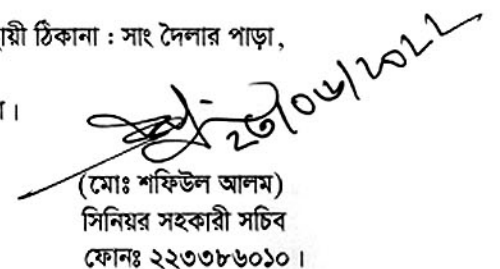 য়ী ঠিকানা : সাং দৈলার পাড়া,
।
২৩/০৬/২০২২
(মোঃ শফিউল আলম)
সিনিয়র সহকারী সচিব
ফোনঃ ২২৩৩৮৬০১০।